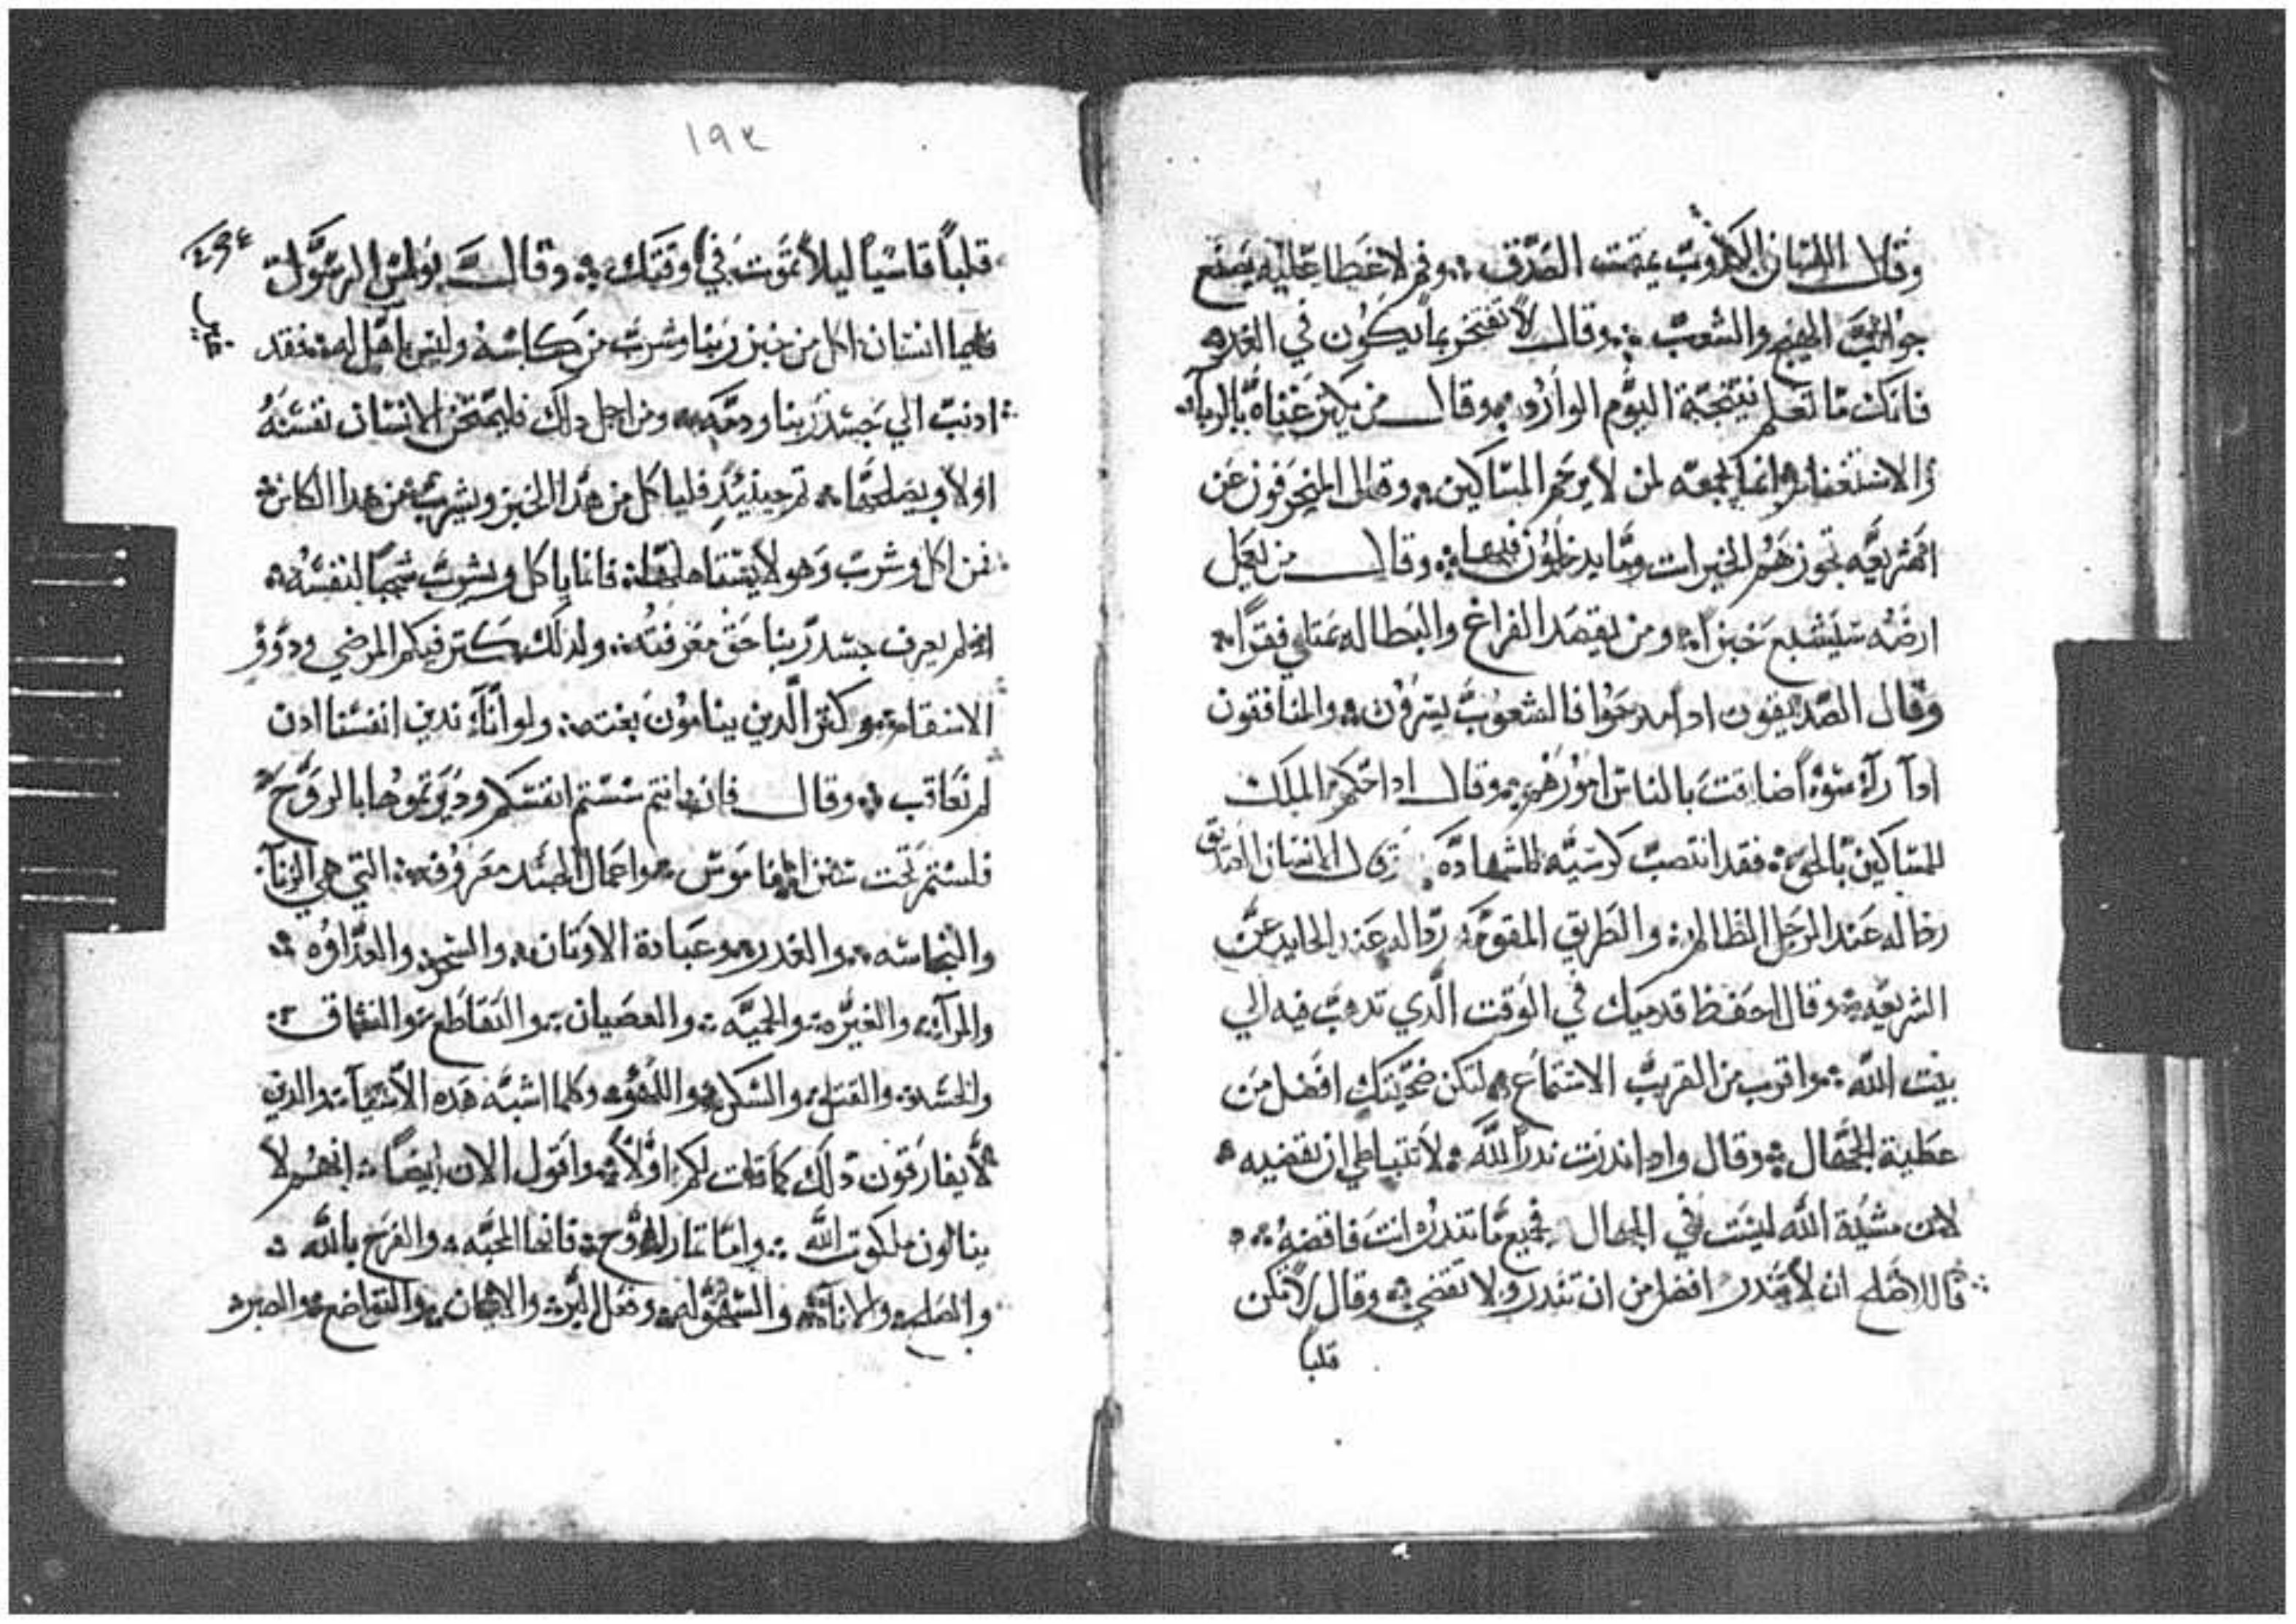 وقال اللسان الكذوب يمقت الصدق وفم لا غطا عليه يصنع
جوالب الهيج والشعب وقال لا تفتخر بما يكون في الغد
فانك ما تعلم نتيجة اليوم الوارد وقال من يكتر غناه بالربا
والاستغفار انما يجمعه لمن لا يرحم المساكين وقال المنحرفون عن
الشريعه تجوزهم الخيرات وما يدخلون فيها وقال من يعمل
ارضه سيشبع خبزاً ومن يقصد الفراغ والبطاله يمتلي فقراً
وقال الصديقون ادا مدحوا فالشعوب يسرون والمنافقون
ادا رآه سوءاً ضاقت بالناس امورهم وقال ادا حكم الملك
للمساكين بالحق فقد انتصب كرسيه للشهادة وقال الانسان الصديق
رداله عند الرجل الظالم والطريق المقومه رداله عند الحايد عن
الشريعه وقال احفظ قدميك في الوقت الدي تدهب فيه الي
بيت الله واقرب من القريب الاستماع لتكن ضحيتك افضل من
عطية الجهال وقال وادا ندرت ندراً لله لا تتباطي ان تقضيه
لان مشية الله ليست في الجهال فجميع ما تندر انت فاقضه
فاللاصلح ان لا تندر افضل من ان تندر ولا تقضي وقال لا تكن
قلباً
١٩٢
قلباً قاسياً ليلا تموت في وقتك وقال بولس الرسول
فايما انسان اكل من خبز ربنا وشرب من كاسه وليس باهل له فقد
ادنب الي جسد ربنا ودمه ومن اجل دلك فليمتحن الانسان نفسه
اولا ويصلحها ثم حينيد فلياكل من هدا الخبز ويشرب من هدا الكاس
فمن اكل وشرب وهو لا يستاهلها فانما ياكل ويشرب شجباً لنفسه
اد لم يعرف جسد ربنا حق معرفته ولدلك كتر فيكم المرضي ودوو
الاسقام وكتر الدين ينامون بغته ولو انا ندين انفسنا ادن
لم نعاقب وقال فان انتم سستم انفسكم ودبرتموها بالروح
فلستم تحت سنن الناموس واعمال الجسد معروفه التي هي الزنا
والنجاسه والغدر وعبادة الاوتان والسحر والعداوه
والمرآ والغيره والحميه والعصيان والتقاطع والنفاق
والحسد والقتل والسكر واللهو وكلما اشبه هده الاشيآ والدين
لا يفارقون دلك كما قلت لكم اولا واقول الان ايضاً انهم لا
ينالون ملكوت الله واما تمار الروح فانها المحبه والفرح بالله
والصلح والاناة والسهوله وفعل البر والايمان والتواضع والصبر